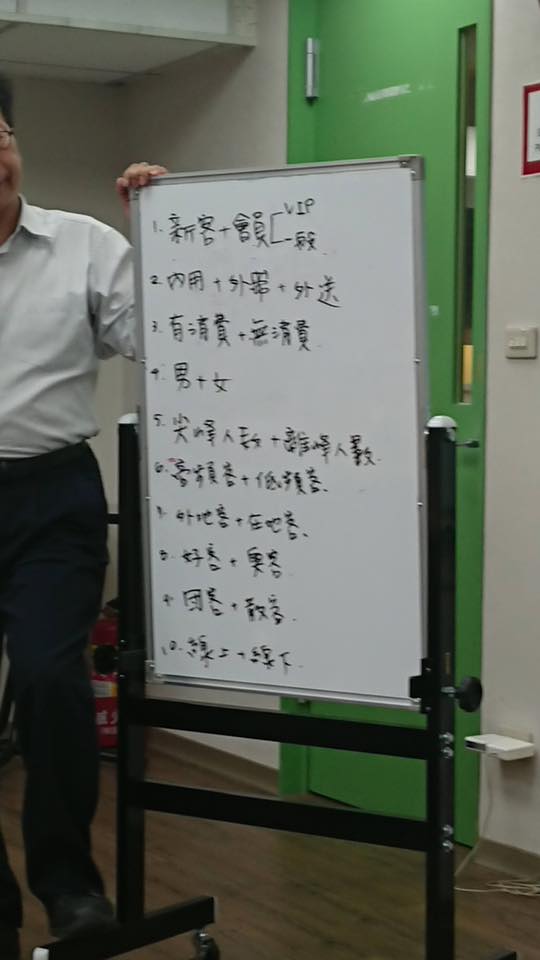 1. 新客+會員 VIP
一般
2. 內用+外帶+外送
3. 有消費+無消費
4. 男+女
5. 尖峰人數+離峰人數
6. 高頻客+低頻客
7. 外地客+在地客
8. 好客+奧客
9. 団客+散客
10. 線上+線下